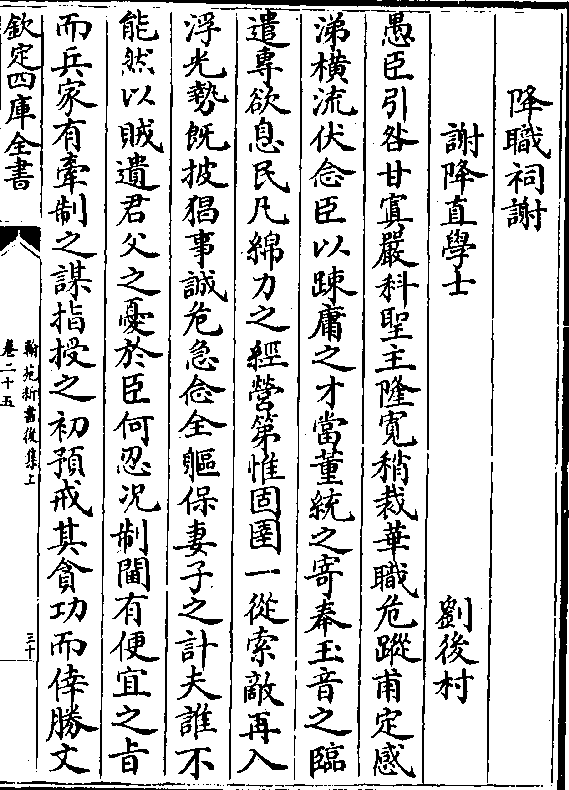 降職祠謝
謝降直學士 劉後村
愚臣引咎甘寘嚴科聖主隆寛稍裁華職危蹤甫定感
涕橫流伏念臣以踈庸之才當董統之寄奉玉音之臨
遣專欲息民凡綿力之經營第惟固圉一從索敵再入
浮光勢既披猖事誠危急念全軀保妻子之計夫誰不
能然以賊遺君父之憂於臣何忍况制閫有便宜之旨
而兵家有牽制之謀指授之初預戒其貪功而倖勝文
欽定四庫全書
翰苑新書後集上
卷二十五
三十